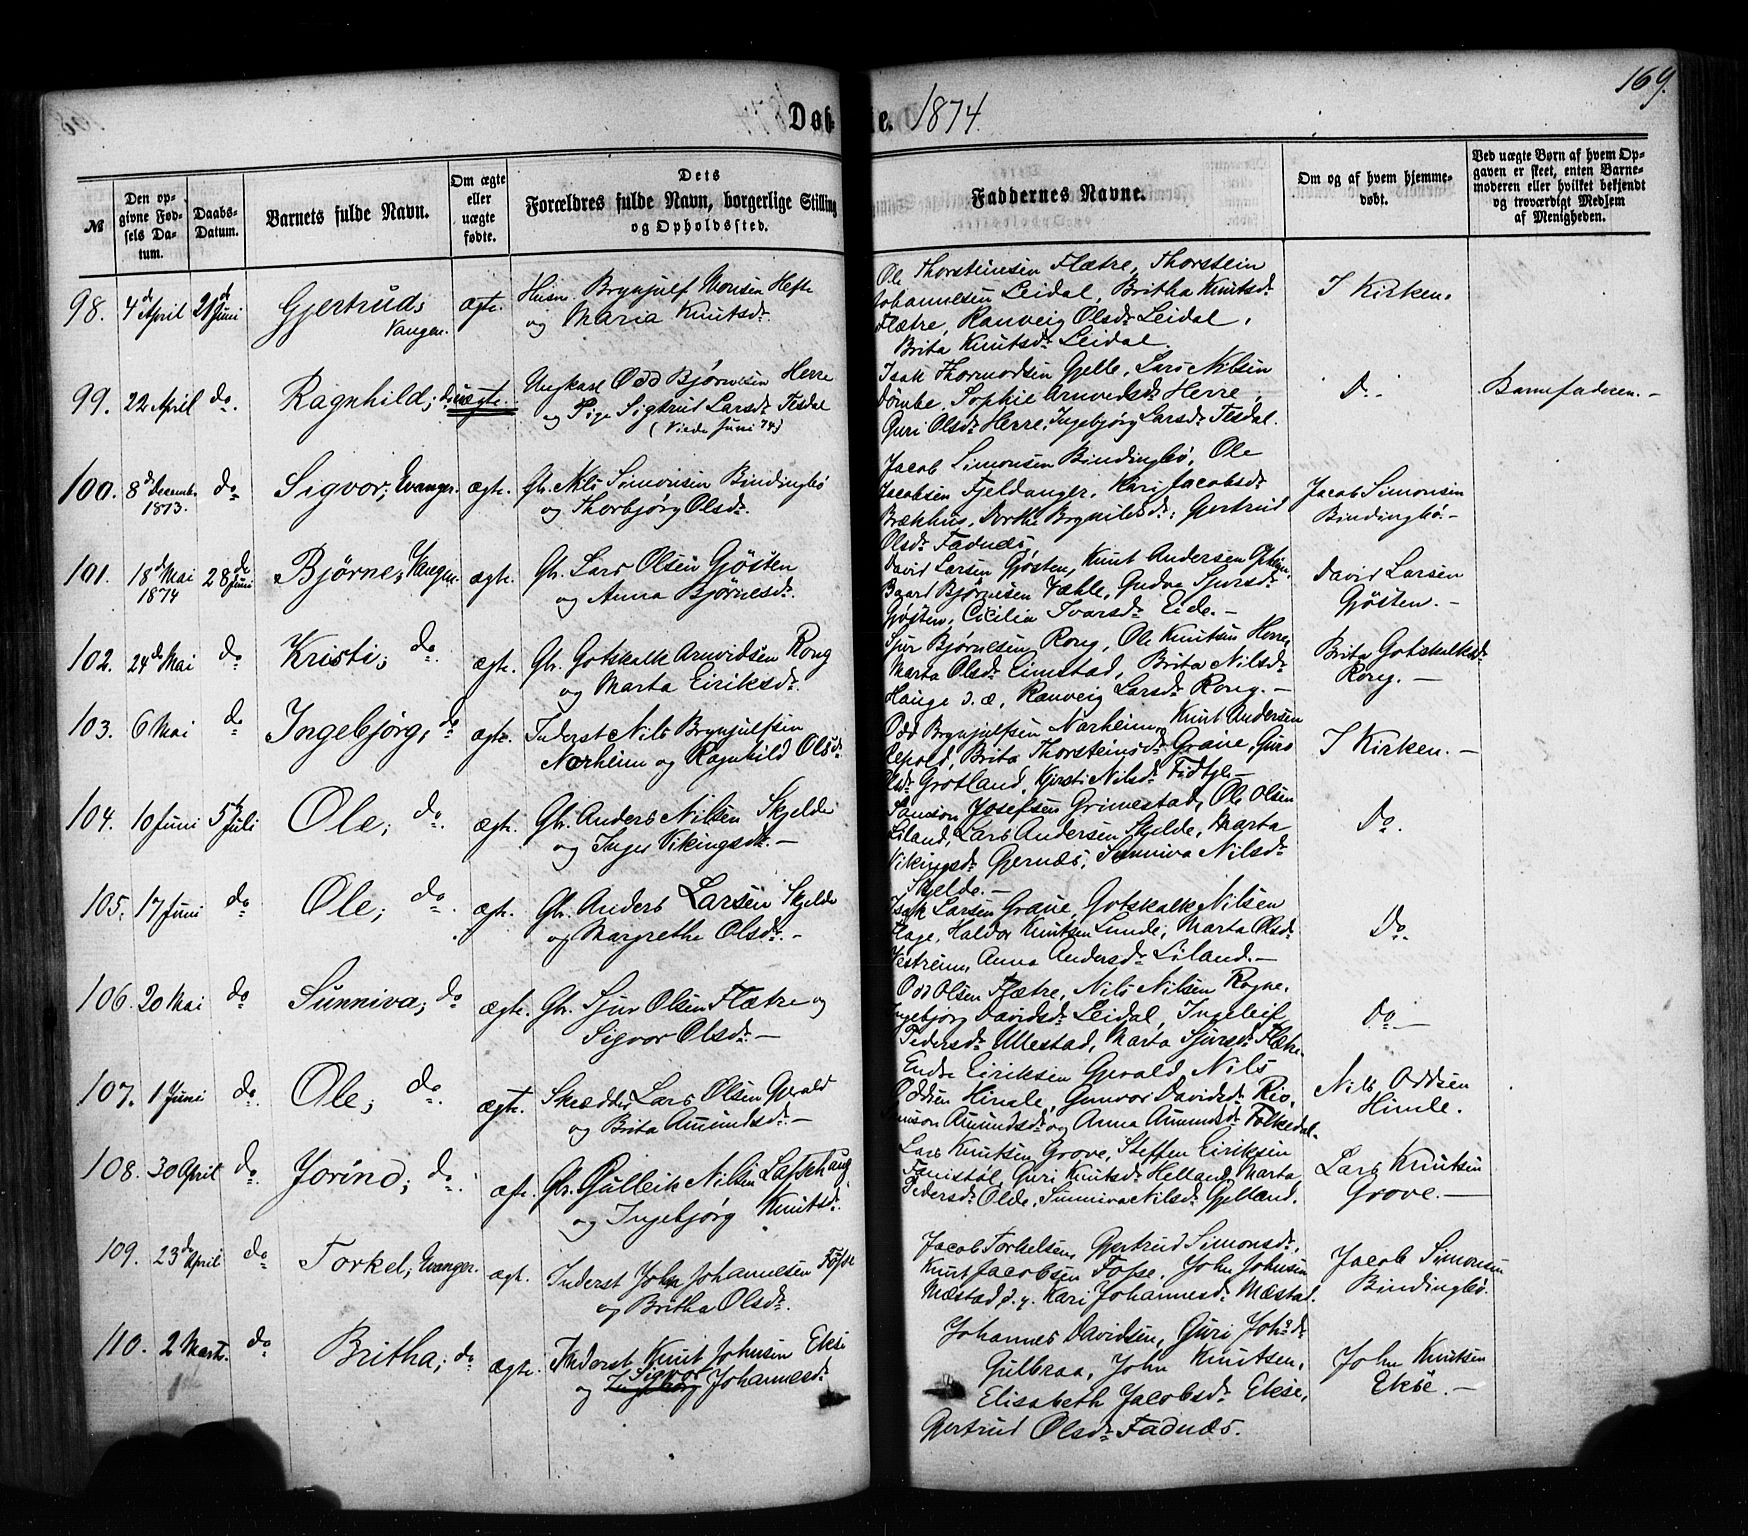 169.
Døbte. 1874.
№
Den opgivne Fødsels Datum.
Daabs-Datum.
Barnets fulde Navn.
Om ægte eller uægte fødte.
Dets Forældres fulde Navn, borgerlige Stilling og Opholdssted.
Faddernes Navne.
Om og af hvem hjemmedøbt.
Ved uægte Børn af hvem Opgaven er skeet, enten Barnemoderen eller hvilket bekjendt og troværdigt Medlem af Menigheden.
98. 4de April 21de Juni Gjertrud; Vangen. ægte. Husm. Brynjulf Monsen Hefte
og Maria Knutsdr.
Ole Thorsteinsen Flætre, Thorstein
Johannesen Leidal, Britha Knutsdr
Flætre, Ranveig Olsdr Leidal,
Brita Knutsdr Leidal.
I Kirken.
99. 22 April do. Ragnhild; do uægte. Ungkarl Odd Bjørnesen Herre
og Pige Sigtrud Larsdr Tesdal
(Viede Juni 74)
Isak Thormodsen Gjelle, Lars Nilsen
Dømbe, Sophie Arnvedsdr Herre,
Guri Olsdr Herre, Ingebjørg Larsdr Tesdal.
Do.
Barnefaderen.
100. 8de Decemb. 1873. do Sigvor; Evanger. ægte. Gbr. Nils Simonsen Bindingbø
og Thorbjørg Olsdr.
Jacob Simonsen Bindingbø, Ole
Jacobsen Fjeldanger, Kari Jacobsdr
Brækhus, Dorth. Brynilds dr, Gjertrud
Olsdr Fadnæs.
Jacob Simonsen
Bindingbø.
101. 18de Mai 1874 28de Juni Bjørne; Vangen. ægte. Gbr. Lars Olsen Gjøsten
og Anna Bjørnesdr.
David Larsen Gjøsten, Knut Andersen
Baard Bjørnesen Væhle, Gudve Sjursdr
Gjøsten, Cicilia Ivarsdr Eide.
David Larsen
Gjøsten.
102. 24de Mai do Kristi; do. ægte. Gbr. Gotskalk Arnvidsen Rong
og Marta Eiriksdr.
Sjur Bjørnesen Rong, Ole Knutsen Herre,
Marta Olsdr Eimstad, Brita Nilsdr
Hauge d. æ, Ranveig Larsdr Rong.
Brita Gotskalksdr
Rong.
103. 6 Mai do Ingebjørg; do ægte. Inderst Nils Brynjulfsen
Nærheim og Ragnhild Olsdr
Odd Brynjulfsen Nærheim, Knut Andersen
Repold, Brita Thorsteinsdr Graue, Guro
Olsdr Grotland, Kjersti Nilsdr
I Kirken.
104. 10 Juni 5te Juli Ole; do. ægte. Gbr. Anders Nilsen Skjelde
og Inger Vikingsdr.
Samson Josefsen Grimestad, Ole Olsen
Liland, Lars Andersen Skjelde, Marta
Vikingsdr Gjernæs, Sunniva Nilsdr
Skjelde.
Do.
105. 17 Juni do Ole; do. ægte. Gbr. Anders Larsen Skjelde
og Margrethe Olsdr.
Isak Larsen Graue, Gotskalk Nilsen
Flage, Haldor Knutsen Lunde, Marta Olsdr
Vestreim, Anna Andersdr Liland.
Do.
106. 20 Mai do Sunniva; do ægte. Gbr. Sjur Olsen Flætre og
Sigvor Olsdr.
Odd Olsen Flætre, Nils Nilsen Rogne,
Ingebjørg Davidsdr Leidal, Ingeleif
Pedersdr Ullestad, Marta Sjursdr Flætre.
Do.
107. 1 Juni do. Ole; do. ægte. Skrædder Lars Olsen Gjerald
og Brita Amundsdr.
Endre Eiriksen Gjerald, Nils
Oddsen Himle, Gunvor Davidsdr
Amundsdr og Anna Amundsdr Folkedal.
Nils Oddsen
Himle.
108. 30 April do. Jorind; do. ægte. Gbr. Gulleik Nilsen
og Ingebjørg Knutsdr.
Lars Knutsen Grove, Steffen Eiriksen
Finnestøl, Guri Knutsdr Helland, Marta
Pedersdr Olde, Sunniva Nilsdr Gjelland.
Lars Knutsen
Grove.
109. 23de April do Torkel; Evanger. ægte. Inderst John Johannesen Fosse
og Britha Olsdr.
Jacob Torkelsen, Gjertrud Simonsdr,
Knut Jacobsen Fosse, John Johnsen
Mæstad, d. y. Kari Johannesdr Mæstad.
Jacob Simonsen
Bindingbø.
110. 2 Marts. do Britha; do ægte. Inderst Knut Johnsen Ekse
og Sigvor Johannesdr
Johannes Davidsen, Guri Johsdr
Gulbraa, John Knutsen,
Elisabeth Jacobsdr Ekse,
Gjertrud Olsdr Fadnæs.
John Knutsen
Ekse.